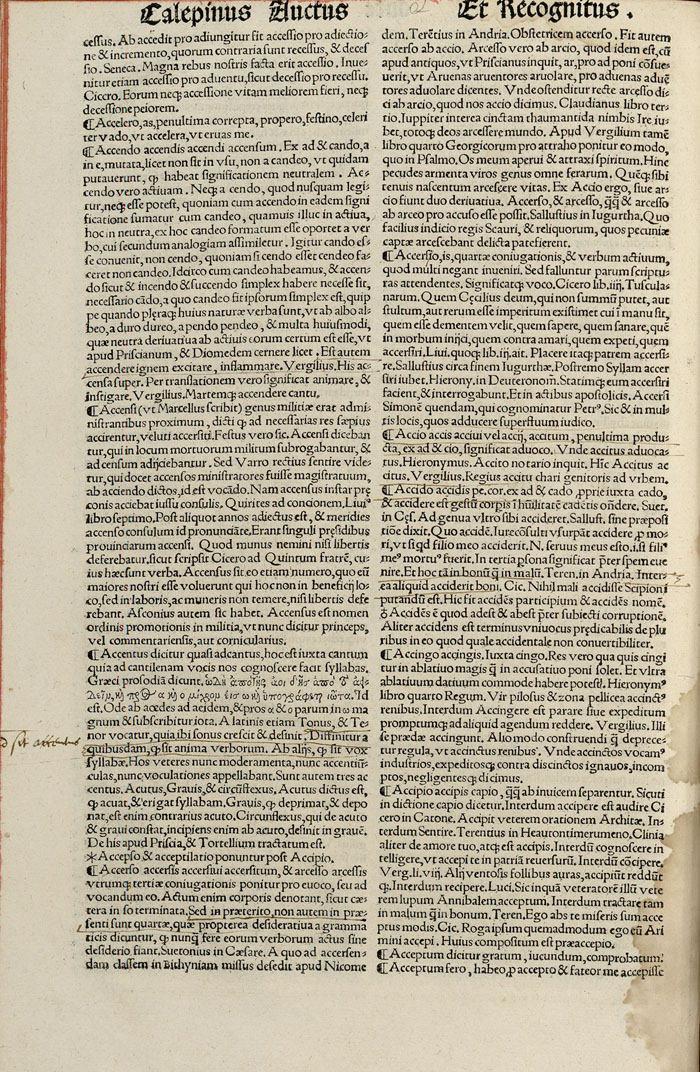 Calepinus Auctus
Et Recognitus.
cessus. Ab accedit pro adiungitur sit accessio pro adiectio-
ne & incremento, quorum contraria sunt recessus, & deces
sio. Seneca. Magna rebus nostris facta erit accessio. Inue-
nitur etiam accessio pro aduentu, sicut decessio pro recessu.
Cicero. Eorum neqꝫ accessione vitam meliorem fieri, neqꝫ
decessione peiorem.
¶ Accelero, as, penultima correpta, propero, festino, celeri
ter vado, vt accelera, vt eruas me.
¶ Accendo accendis accendi accensum. Ex ad & cando, a
in e, mutata, licet non sit in vsu, non a candeo, vt quidam
putauerunt, ꝙ habeat significationem neutralem. Ac-
cendo vero actiuam. Neqꝫ a cendo, quod nusquam legi-
tur, neqꝫ esse potest, quoniam cum accendo in eadem signi
ficatione sumatur cum candeo, quamuis illuc in actiua,
hoc in neutra, ex hoc candeo formatum esse oportet a ver
bo, cui secundum analogiam assimiletur. Igitur cando es-
se conuenit, non cendo, quoniam si cendo esset cendeo fa-
ceret non candeo. Idcirco cum candeo habeamus, & accen-
do sicut & incendo & succendo simplex habere necesse sit,
necessario cādo, a quo candeo fit ipsorum simplex est, quip
pe quando plęraqꝫ huius naturæ verba sunt, vt ab albo al-
beo, a duro dureo, a pendo pendeo, & multa huiusmodi,
quæ neutra deriuatiua ab actiuis eorum certum est esse, vt
apud Priscianum, & Diomedem cernere licet. Est autem
accendere ignem excitare, inflammare. Vergilius. His ac-
censa super. Per translationem vero significat animare, &
instigare. Vergilius. Martemqꝫ accendere cantu.
¶ Accensi (vt Marcellus scribit) genus militiæ erat admi-
nistrantibus proximum, dicti ꝙ ad necessarias res sæpius
accirentur, veluti accersiti. Festus vero sic. Accensi diceban
tur, qui in locum mortuorum militum subrogabantur, &
ad censum adijciebantur. Sed Varro rectius sentire vide-
tur, qui docet accensos ministratores fuisse magistratuum,
ab acciendo dictos, id est vocādo. Nam accensus instar prę
conis acciebat iussu consulis, Quirites ad concionem, Liui⁹
libro septimo. Post aliquot annos adiectus est, & meridies
accenso consulum id pronunciate, Erant singuli pręsidibus
prouinciarum accensi. Quod munus nemini nisi libertis
deferebatur, sicut scripsit Cicero ad Quintum fratrē, cu-
ius hæc sunt verba. Accensus sit eo etiam numero, quo eū
maiores nostri esse voluerunt qui hoc non in beneficij lo-
co, sed in laboris, ac muneris non temere, nisi libertis defe-
rebant. Asconius autem sic habet. Accensus est nomen
ordinis promotionis in militia, vt nunc dicitur princeps,
vel commentariensis, aut cornicularius.
¶ Accentus dicitur quasi adcantus, hoc est iuxta cantum
quia ad cantilenam vocis nos cognoscere facit syllabas.
Græci prosodia dicunt.
Id
est. Ode ab aœdes ad aeidem, & pros a & o parum in ω ma
gnum & subscribitur iota. A latinis etiam Tonus, & Te-
nor vocatur, quia ibi sonus crescit & desinit. Diffinitur a
quibusdam, ꝙ sit anima verborum. Ab alijs, ꝙ sit vox
syllabæ. Hos veteres nunc moderamenta, nunc accentiū-
culas, nunc voculationes appellabant. Sunt autem tres ac-
centus. Acutus, Grauis, & circūflexus. Acutus dictus est,
ꝙ acuat, & erigat syllabam. Grauis, ꝙ deprimat, & depo
nat, est enim contrarius acuto. Circunflexus, qui de acuto
& graui constat, incipiens enim ab acuto, desinit in grauē.
De his apud Prisciā, & Tortellium tractatum est.
* Accepso & acceptilatio ponuntur post Accipio.
¶ Accerso accersis accersiui accersitum, & arcesso arcessis
vtrumqꝫ tertiæ coniugationis ponitur pro euoco, seu ad
vocandum eo. Actum enim corporis denotant, sicut cæ-
tera in so terminata. Sed in præterito, non autem in præ-
senti sunt quartæ, quæ propterea desideratiua a gramma
ticis dicuntur, ꝙ nunqꝫ fere eorum verborum actus sine
desiderio fiant. Suetonius in Cæsare. A quo ad accersen-
dam classem in Bithyniam missus desedit apud Nicome
dem. Terētius in Andria. Obstetricem accerso. Fit autem
accerso ab accio. Arcesso vero ab arcio, quod idem est, cū
apud antiquos, vt Priscianus inquit, ar, pro ad poni cōsue
uerit, vt Aruenas aruentores aruolare, pro aduenas aduē
tores aduolare dicentes. Vnde ostenditur recte arcesso di
ci ab arcio, quod nos accio dicimus. Claudianus libro ter-
tio. Iuppiter interea cinctam thaumantida nimbis Ire iu-
bet, totoqꝫ deos arcessere mundo. Apud Vergilium tamē
libro quarto Georgicorum pro attraho ponitur eo modo,
quo in Psalmo. Os meum aperui & attraxi spiritum. Hinc
pecudes armenta viros genus omne ferarum. Quēqꝫ sibi
tenuis nascentum arcescere vitas. Ex Accio ergo, siue ar-
cio fiunt duo deriuatiua. Accerso, & arcesso, q̄q̄ & arcesso
ab arceo pro accuso esse possit. Sallustius in Iugurtha. Quo
facilius indicio regis Scauri, & reliquorum, quos pecuniæ
captæ arcescebant delicta patefierent.
¶ Accersio, is, quartæ coniugationis, & verbum actiuum,
quod multi negant inueniri. Sed falluntur parum scriptu-
ras attendentes. Significatqꝫ voco. Cicero lib. iiij. Tuscula-
narum. Quem Cęcilius deum, qui non summū putet, aut
stultum, aut rerum esse imperitum existimet cui ī manu sit,
quem esse dementem velit, quem sapere, quem sanare, quē
in morbum inijci, quem contra amari, quem expeti, quem
accersiri, Liui. quoqꝫ lib. iij. ait. Placere itaqꝫ patrem accersi-
re. Sallustius circa finem Iugurthæ. Postremo Syllam accer
siri iubet. Hierony. in Deuteronom̄. Statimqꝫ eum accersiri
facient, & interrogabunt. Et in actibus apostolicis. Accersi
Simonē quendam, qui cognominatur Petr⁹. Sic & in mul
tis locis, quos adducere superfluum iudico.
¶ Accio accis acciui vel accij, accitum, penultima produ-
cta, ex ad & cio, significat aduoco. Vnde accitus aduoca-
tus. Hieronymus. Accito notario inquit. Hīc Accitus ac-
citus. Vergilius. Regius accitu chari genitoris ad vrbem.
¶ Accido accidis pe. cor. ex ad & cado, ꝓprie iuxta cado,
& accidere est gestū corpis ī hūilitatē cadētis ondēre. Suet.
in Cęs. Ad genua vltro sibi accideret. Sallust. sine præposi
tiōe dixit. Quo accidē. Iurecōsulti vsurpāt accidere ꝓ mo-
ri, vt si qd filio meo acciderit. N. seruus meus esto. i. si fili⁹
me⁹ mortu⁹ fuerit. In tertia psona significat pter spem eue
nire. Et hoc tā in bonū q̄ in malū. Teren. in Andria. Inter-
ea aliquid acciderit boni. Cic. Nihil mali accidisse Scipioni
putandū est. Hic fit accidēs participium & accidēs nomē.
& Accidēs ē quod adest & abest pter subiecti corruptionē.
Aliter accidens est terminus vniuocus prędicabilis de plu
ribus in eo quod quale accidentale non conuertibiliter.
¶ Accingo accingis. Iuxta cingo. Res vero qua quis cingi
tur in ablatiuo magis q̄ in accusatiuo poni solet. Et vltra
ablatiuum datiuum commode habere potest. Hieronym⁹
libro quarto Regum. Vir pilosus & zona pellicea accinct⁹
renibus. Interdum Accingere est parare siue expeditum
promptumqꝫ ad aliquid agendum reddere. Vergilius. Illi
se prædæ accingunt. Alio modo construendi q̄ deprecc-
tur regula, vt accinctus renibus. Vnde accinctos vocam⁹
industrios, expeditosqꝫ contra discinctos ignauos, incom
ptos, negligentesqꝫ dicimus.
¶ Accipio accipis capio, q̄q̄ ab inuicem separentur. Sicuti
in dictione capio dicetur. Interdum accipere est audire Ci
cero in Catone. Accipit veterem orationem Architæ. In-
terdum Sentire. Terentius in Heautontimerumeno. Clinia
aliter de amore tuo, atqꝫ est accipis. Interdū cognoscere in
telligere, vt accepi te in patriā reuersurū. Interdū cōcipere.
Verg. li. viij. Alij ventosis follibus auras, accipiūt reddūt
qꝫ. Interdum recipere. Luci. Sic inquā veteratorē illū vete
rem lupum Annibalem acceptum. Interdum tractare tam
in malum q̄ in bonum. Teren. Ego abs te miseris sum acce
ptus modis. Cic. Roga ipsum quemadmodum ego eū Ari
mini accepi. Huius compositum est præaccepio.
¶ Acceptum dicitur gratum, iucundum, comprobatum.
¶ Acceptum fero, habeo, ꝓ accepto & fateor me accepisse